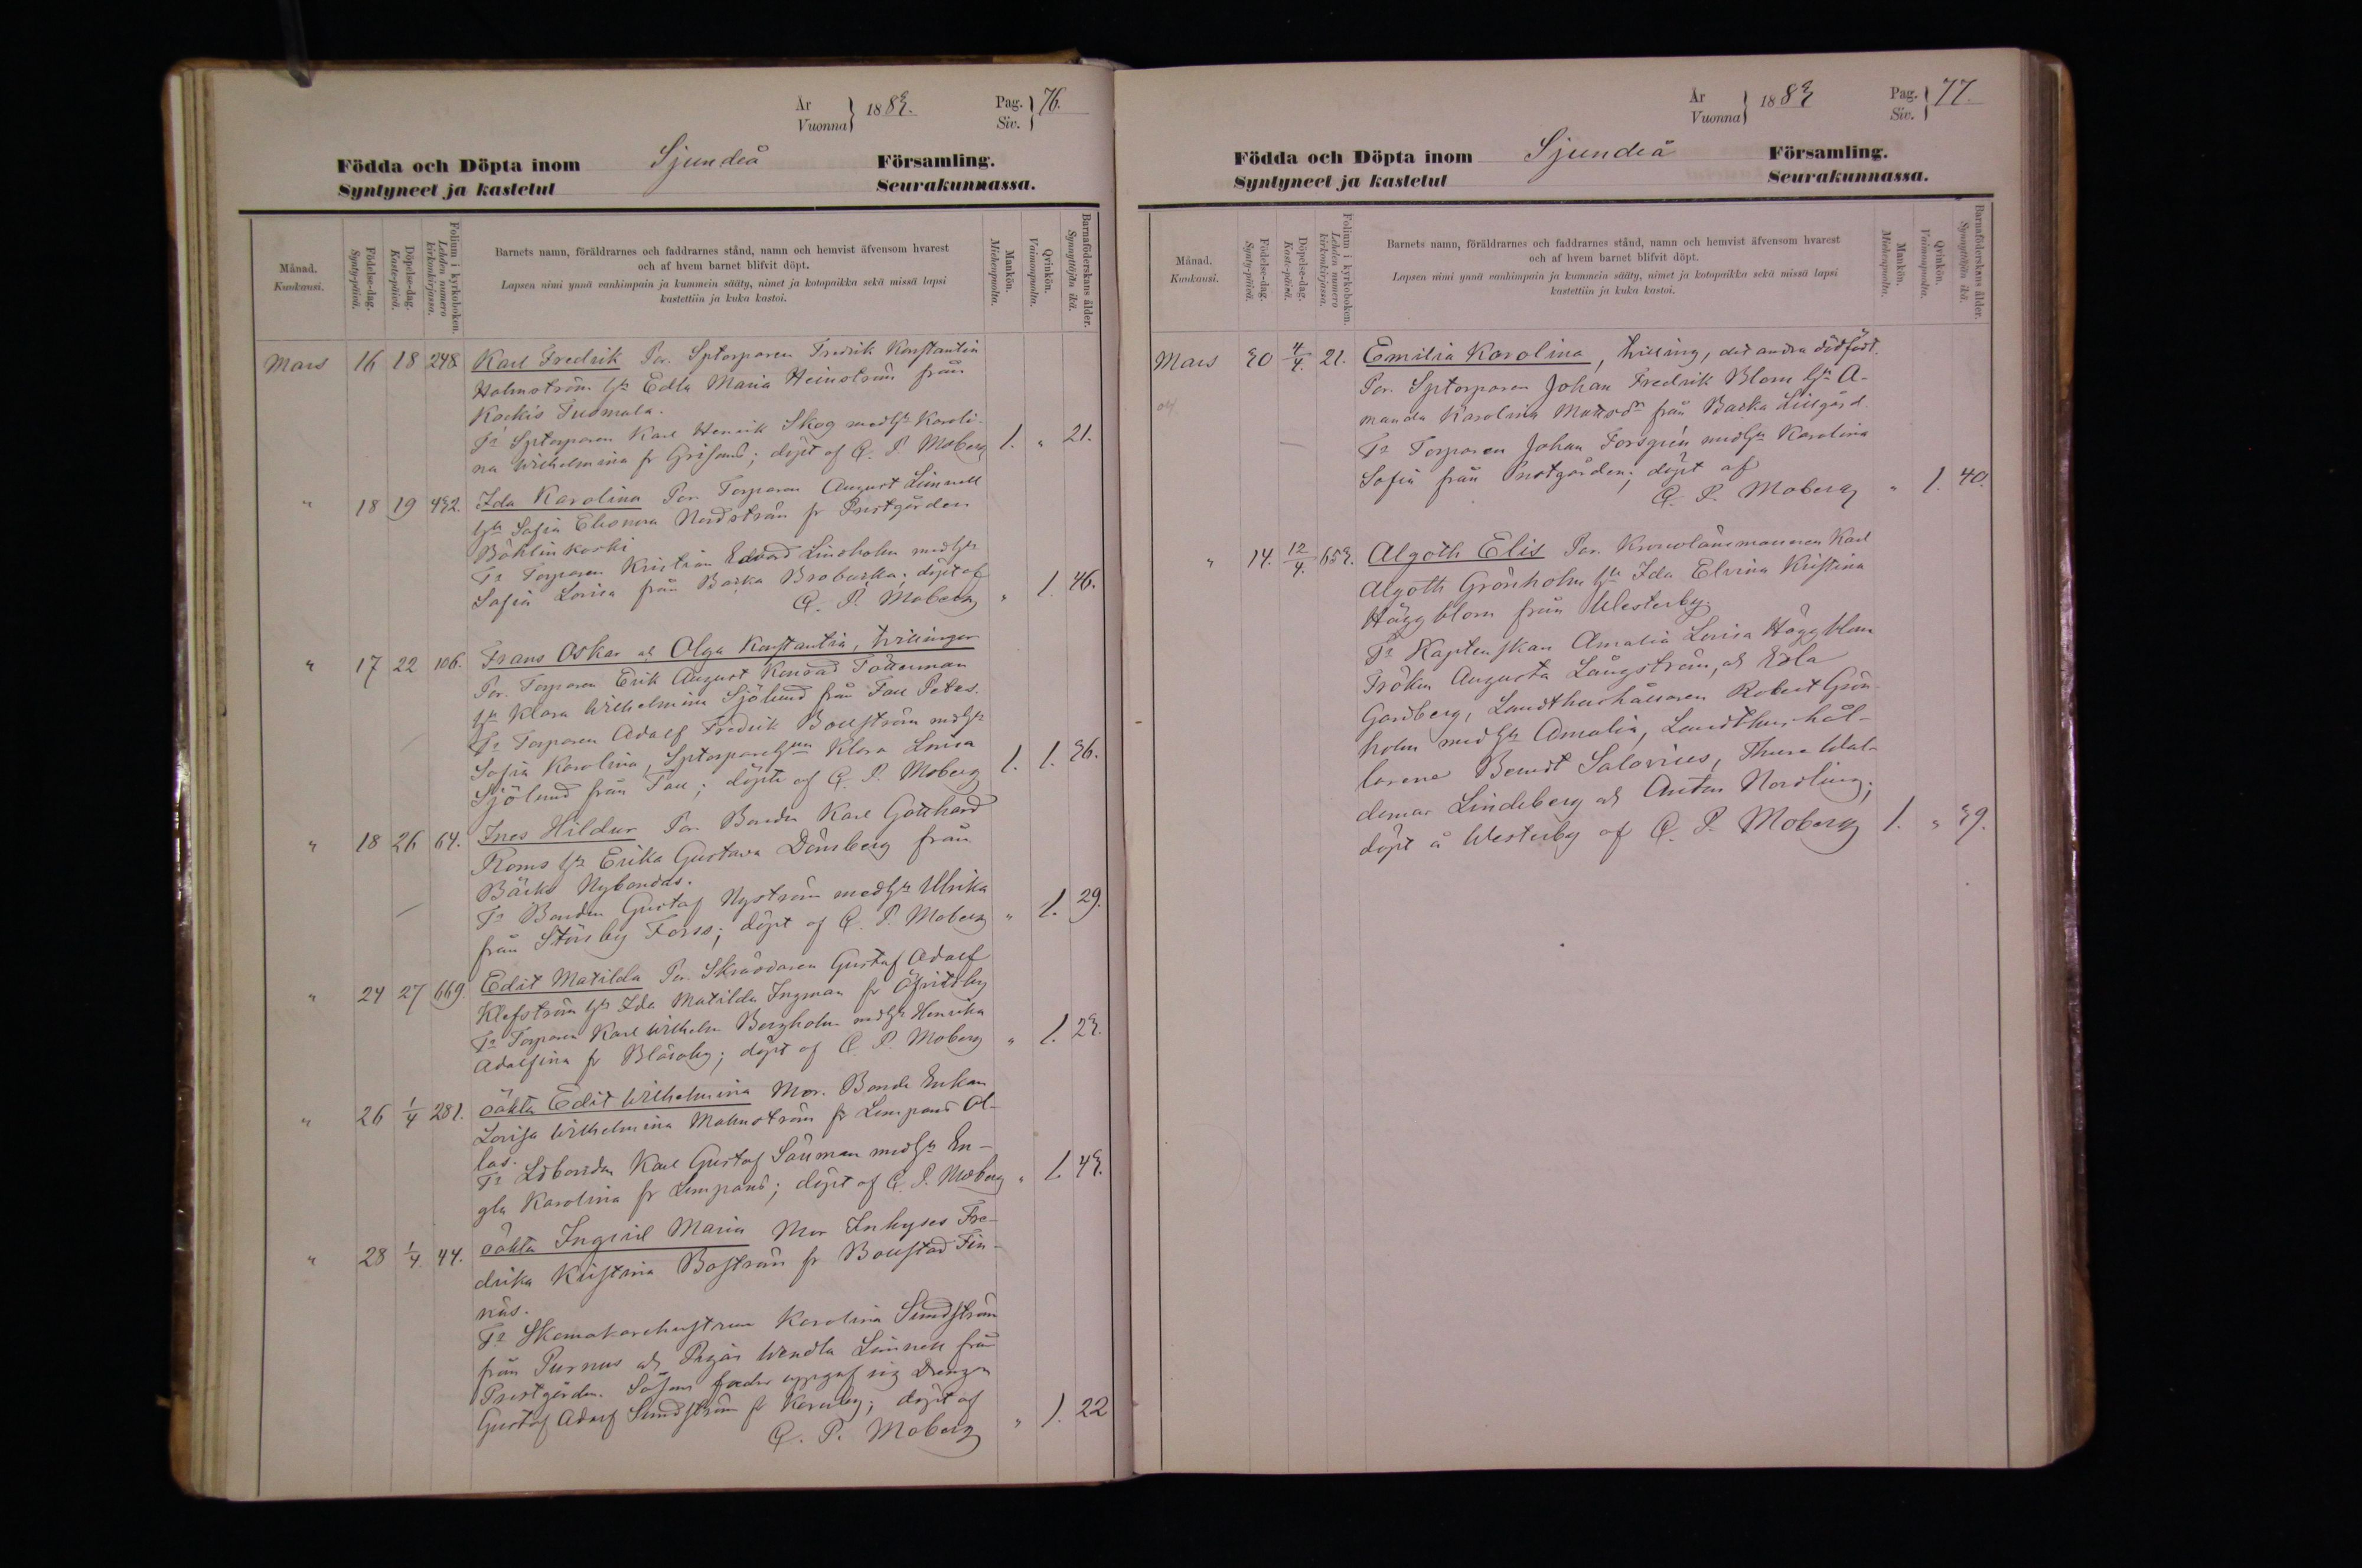 År
Vuonna
1883.
Pag.
Siv.
76.
Födda och Döpta inom Sjundeå Församling.
Syntyneet ja kastetut Seurakunnassa.
Månad.
Kuukausi.
Födelse-dag.
Syntypäivä.
Döpelse-dag.
Kaste-päivä.
Folium i kyrkoboken.
Lehden numero kirkonkirjassa.
Barnets namn, föräldrarnes och faddrarnes stånd, namn och hemvist äfvensom hvarest
och af hvem barnet blifvit döpt.
Lapsen nimi ynnä vanhimpain ja kummein sääty, nimet ja kotopaikka sekä missä lapsi
kastettiin ja kuka kastoi.
Mankön.
Miehenpuolta.
Qvinkön.
Vaimonpuolta.
Barnaföderskans ålder.
Synnyttäjän ikä.
Mars 16 18 248 Karl Fredrik För. Sptorparen Fredrik Konstantin
Holmström hu Edla Maria Heinström från
Kockis Tuomala.
Fr Sptorparen Karl Henrik Skog med hu Karoli-
na Wilhelmina fr Grisans; döpt af C. P. Moberg 1. " 21.
" 18 19 432. Ida Karolina För. Torparen August Linnell
hu Sofia Eleonora Nordström fr Prestgården
Böhlinkoski
Fr Torparen Kristian Edvard Lindholm med hu
Sofia Lovisa från Backa Brobacka; döpt af
C. P. Moberg " 1. 46.
" 17 22 106. Frans Oskar och Olga Konstantia, Tvillingar
För. Torparen Erik August Konrad Fätterman
hu Klara Wilhelmina Sjölund från Tall Petas.
Fr Torparen Adolf Fredrik Bollström med hu
Sofia Karolina, Sptorparehun Klara Lovisa
Sjölund från Tall; döpte af C. P. Moberg 1. 1. 36.
" 18 26 64. Ines Hildur För. Bonden Karl Gotthard
Roms hu Erika Gustava Dönsberg från
Bäcks Nybondas.
Fr Bonden Gustaf Nyström med hu Ulrika
från Störsby Forss; döpt af C. P. Moberg " 1. 29.
" 24 27 669. Edit Matilda För. Skräddaren Gustaf Adolf
Klefström hu Ida Matilda Ingman fr Öfvitsby
Fr Torparen Karl Wilhelm Bergholm med hu Henrika
Adolfina fr Blåsaby; döpt af C. P. Moberg " 1. 23.
" 26 1/4 281. oäkta Edit Wilhelmina Mor. Bonde Enkan
Lovisa Wilhelmina Malmström fr Lempans Ol-
las.
Fr Ldbonden Karl Gustaf Sallman med hu En-
gla Karolina fr Lempans; döpt af C. P. Moberg " 1. 43.
" 28 1/4. 44. oäkta Ingrid Maria Mor Inhyses Fre-
drika Kristina Boström fr Bollstad Fin-
näs.
Fr Skomakarehustrun Karolina Sundström
från Purnus och Pigan Wendla Linnell från
Prestgården. Såsom fader uppgaf sig Drengen
Gustaf Adolf Sundström fr Karuby; döpt af
C. P. Moberg " 1. 22
År
Vuonna
1883
Pag.
Siv.
77.
Födda och Döpta inom Sjundeå Församling.
Syntyneet ja kastetut Seurakunnassa.
Månad.
Kuukausi.
Födelse-dag.
Synty-päivä.
Döpelse-dag.
Kaste-päivä.
Folium i kyrkoboken.
Lehden numero kirkonkirjassa.
Barnets namn, föräldrarnes och faddrarnes stånd, namn och hemvist äfvensom hvarest
och af hvem barnet blifvit döpt.
Lapsen nimi ynnä vanhimpain ja kummein sääty, nimet ja kotopaikka sekä missä lapsi
kastettiin ja kuka kastoi.
Mankön.
Miehenpuolta.
Qvinkön.
Vaimonpuolta.
Barnaföderskans ålder.
Synnyttäjän ikä.
Mars 30 4/4. 21. Emilia Karolina, tvilling, det andra dödfödt.
För. Sptorparen Johan Fredrik Blom hu A-
manda Karolina Mattsdr från Backa Lillgård.
Fr Torparen Johan Forsgrén med hu Karolina
Sofia från Prestgården; döpt af
C. P. Moberg " 1. 40.
" 14. 12/4. 653. Algoth Elis För. Kronolänsmannen Karl
Algoth Grönholm hu Ida Elvina Kristina
Häggblom från Westerby.
Fr Kaptenskan Amalia Lovisa Häggblom
Fröken Augusta Långström, och Edla
Gardberg, Landthushållaren Robert Grön-
holm med hu Amalia, Landthushål-
larene Berndt Salovius, Thure Wal-
demar Lindeberg och Anton Nordling;
döpt å Westerby af C. P. Moberg 1. " 39.